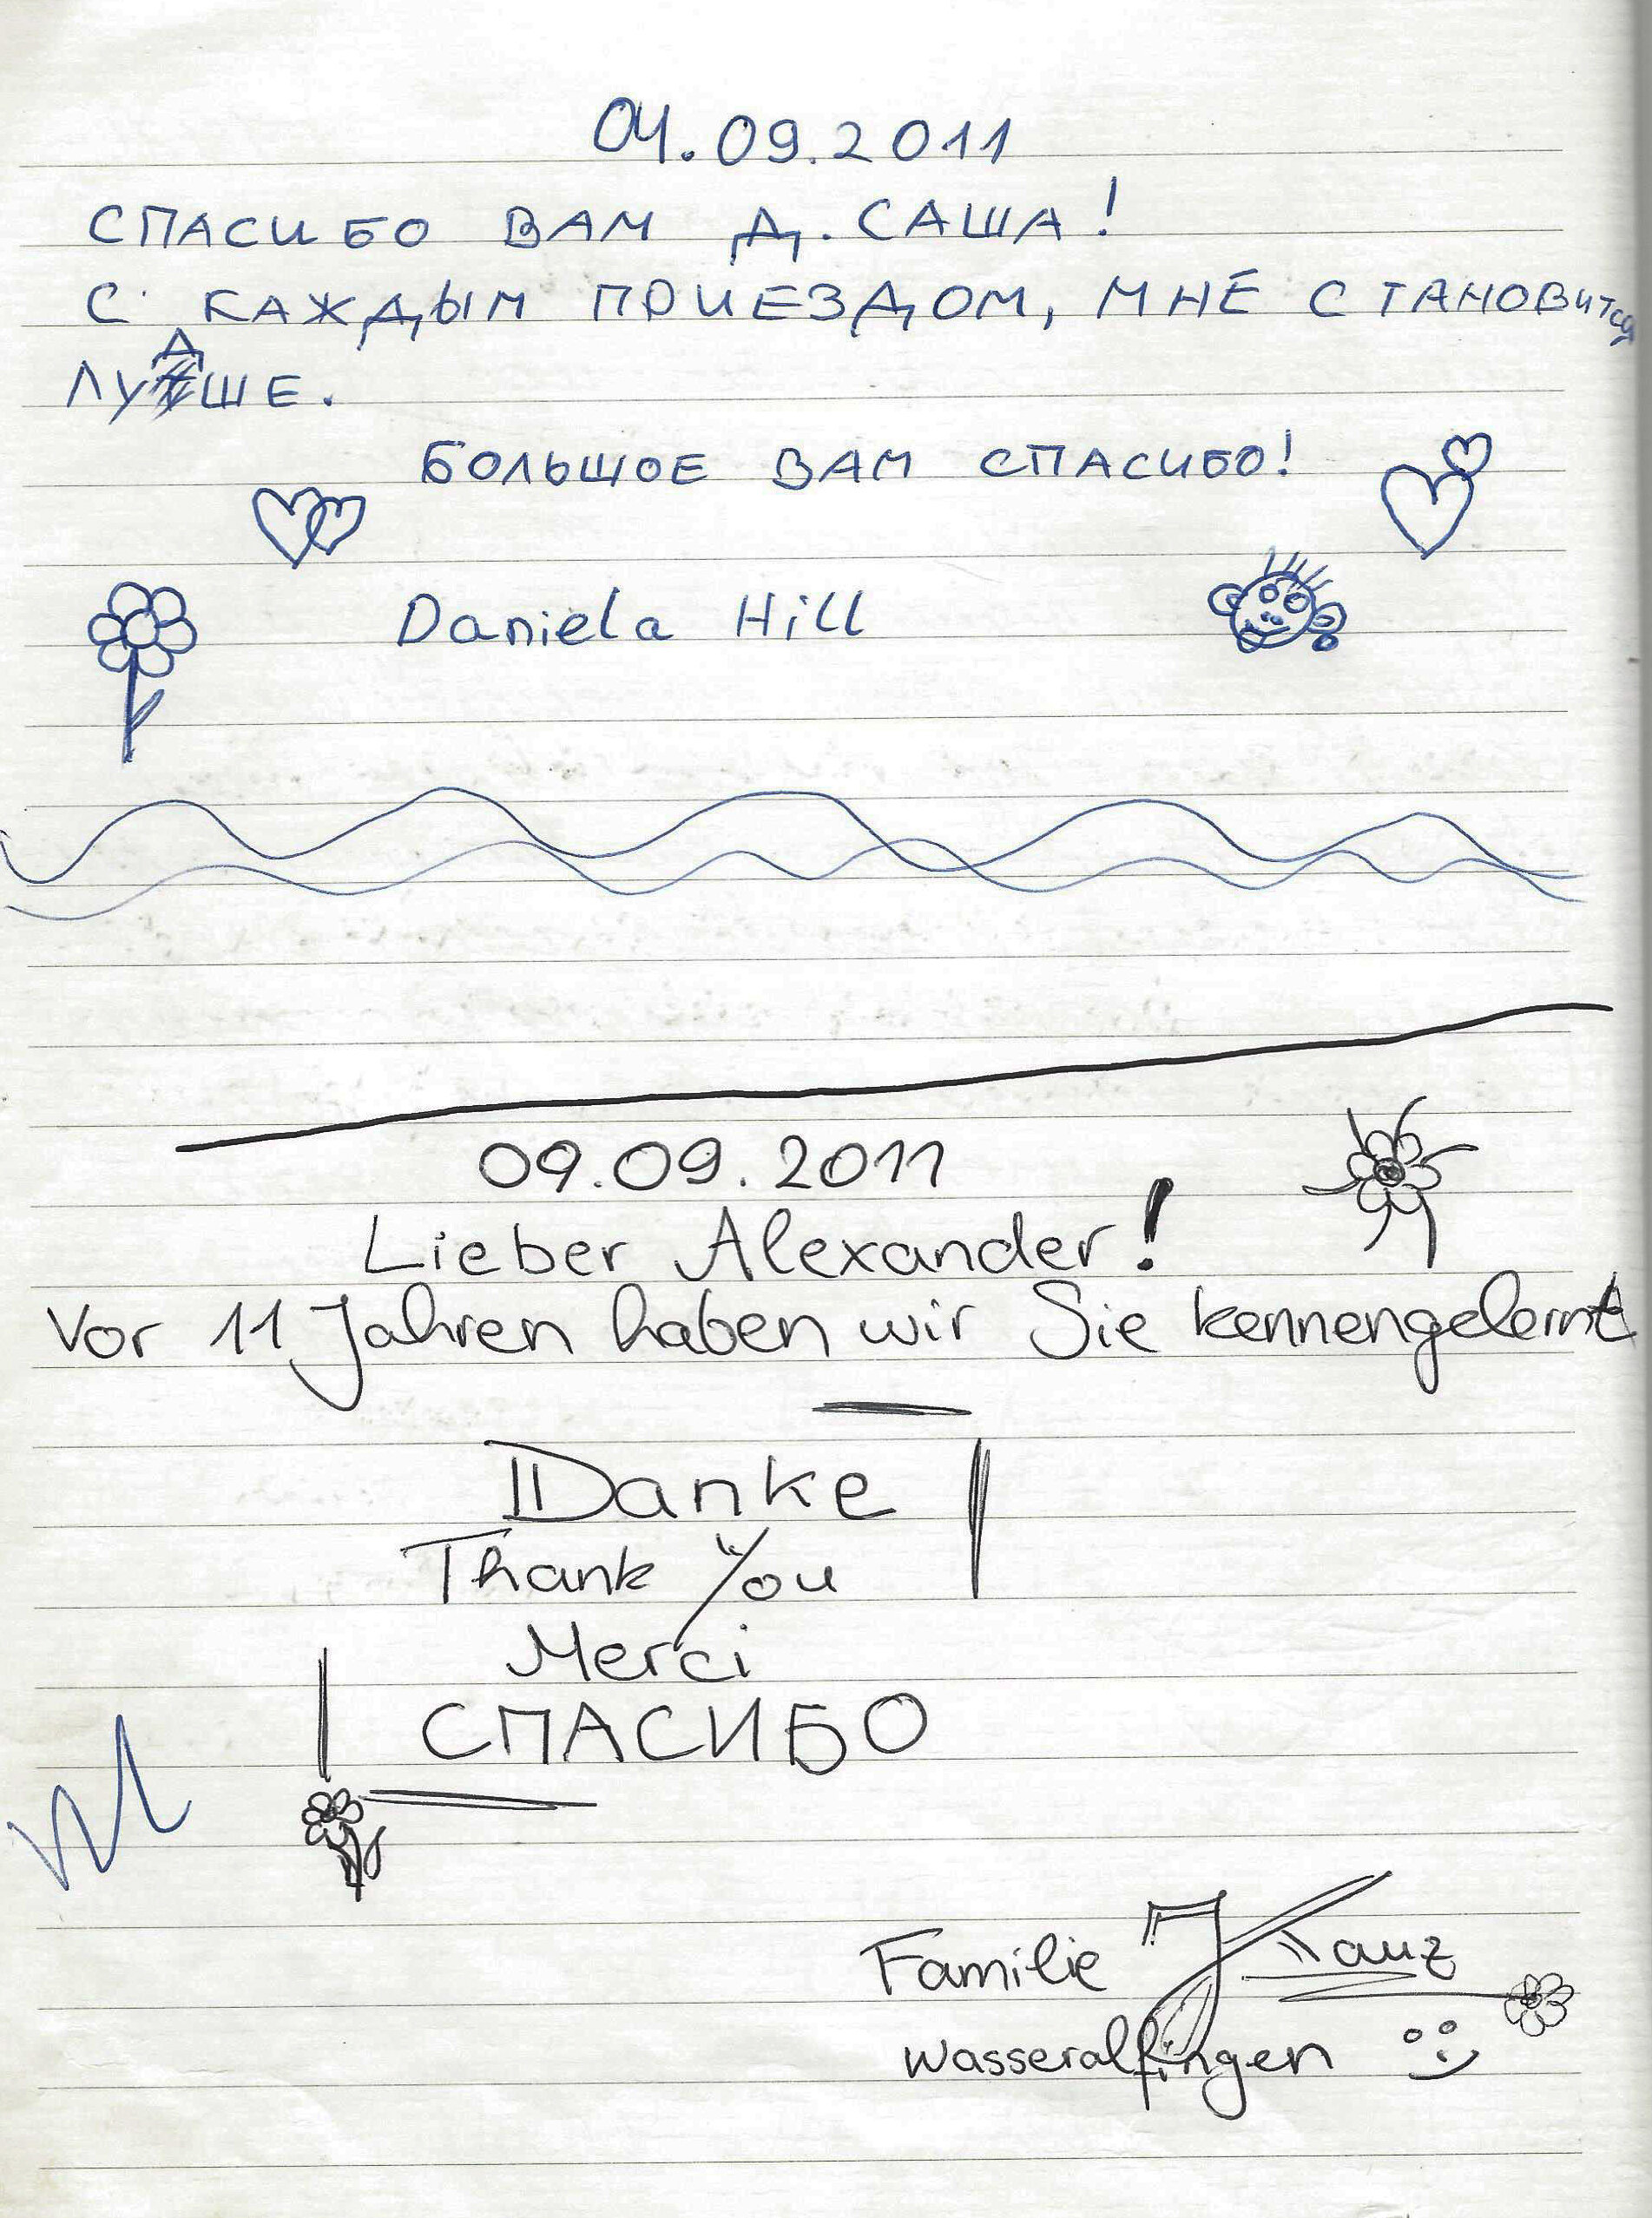 04.09.2011
СПАСИБО ВАМ Д. САША!
С КАЖДЫМ ПРИЕЗДОМ, МНЕ СТАНОВИТСЯ
ЛУДШЕ.
БОЛЬШОЕ ВАМ СПАСИБО!
Daniela Hill
09.09.2011
Lieber Alexander!
Vor 11 Jahren haben wir Sie kennengelernt
Danke
Thank You
Merci
СПАСИБО
Familie Kauz
Wasseralfingen